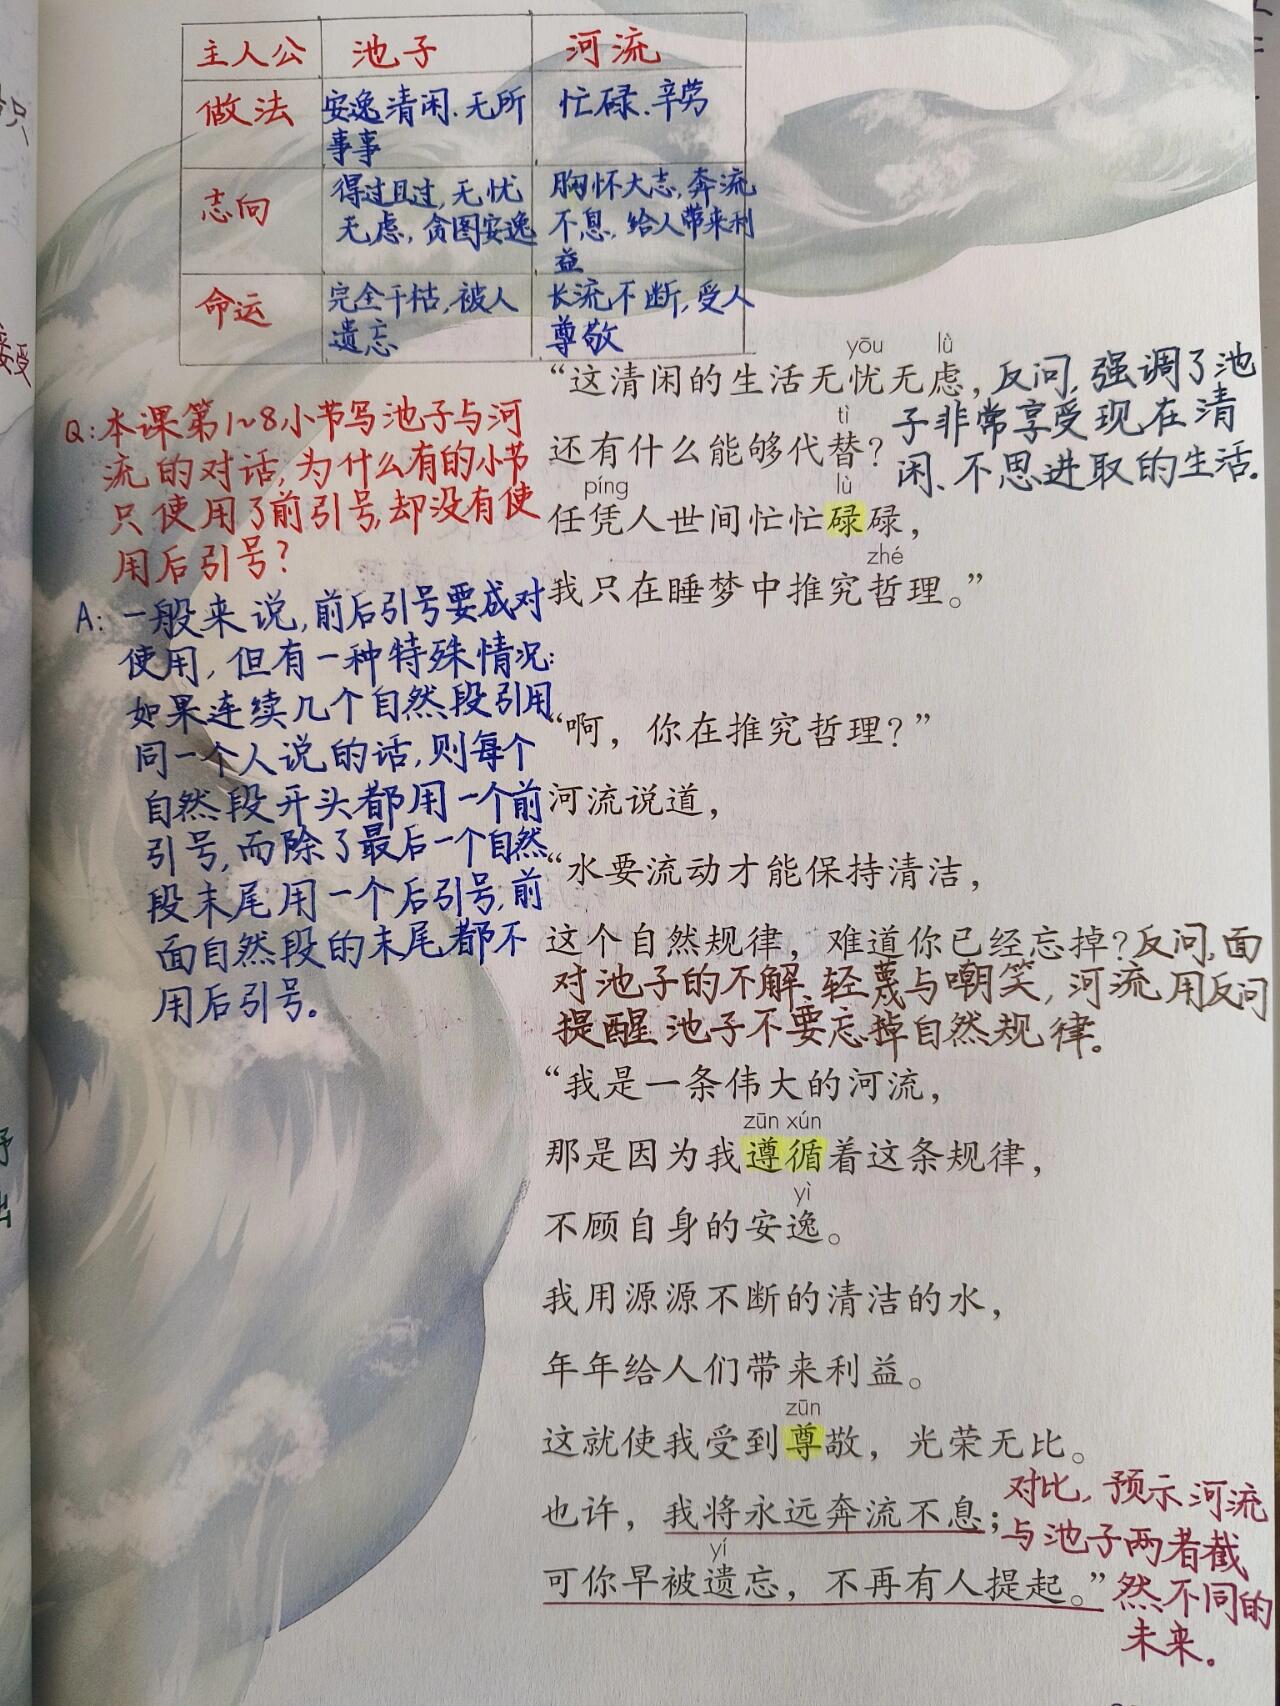 主人公 池子 河流
做法 安逸清闲、无所 忙碌、辛劳
事事
志向 得过且过,无忧 胸怀大志,奔流
无虑,贪图安逸 不息,给人带来利
益
命运 完全干枯,被人 长流不断,受人
遗忘 尊敬
Q:本课第1~8小节写池子与河
流的对话,为什么有的小节
只使用了前引号,却没有使
用后引号?
A:一般来说,前后引号要成对
使用,但有一种特殊情况:
如果连续几个自然段引用
同一个人说的话,则每个
自然段开头都用一个前
引号,而除了最后一个自然
段末尾用一个后引号,前
面自然段的末尾都不
用后引号。
yōu lǜ
“这清闲的生活无忧无虑,
反问,强调了池
子非常享受现在清
闲、不思进取的生活。
tì
还有什么能够代替?
píng lù
任凭人世间忙忙碌碌,
zhé
我只在睡梦中推究哲理。”
“啊,你在推究哲理?”
河流说道,
“水要流动才能保持清洁,
这个自然规律,难道你已经忘掉?
反问,面
对池子的不解、轻蔑与嘲笑,河流用反问
提醒池子不要忘掉自然规律。
“我是一条伟大的河流,
zūn xún
那是因为我遵循着这条规律,
yì
不顾自身的安逸。
我用源源不断的清洁的水,
年年给人们带来利益。
zūn
这就使我受到尊敬,光荣无比。
也许,我将永远奔流不息;
yí
可你早被遗忘,不再有人提起。”
对比,预示河流
与池子两者截
然不同的
未来。